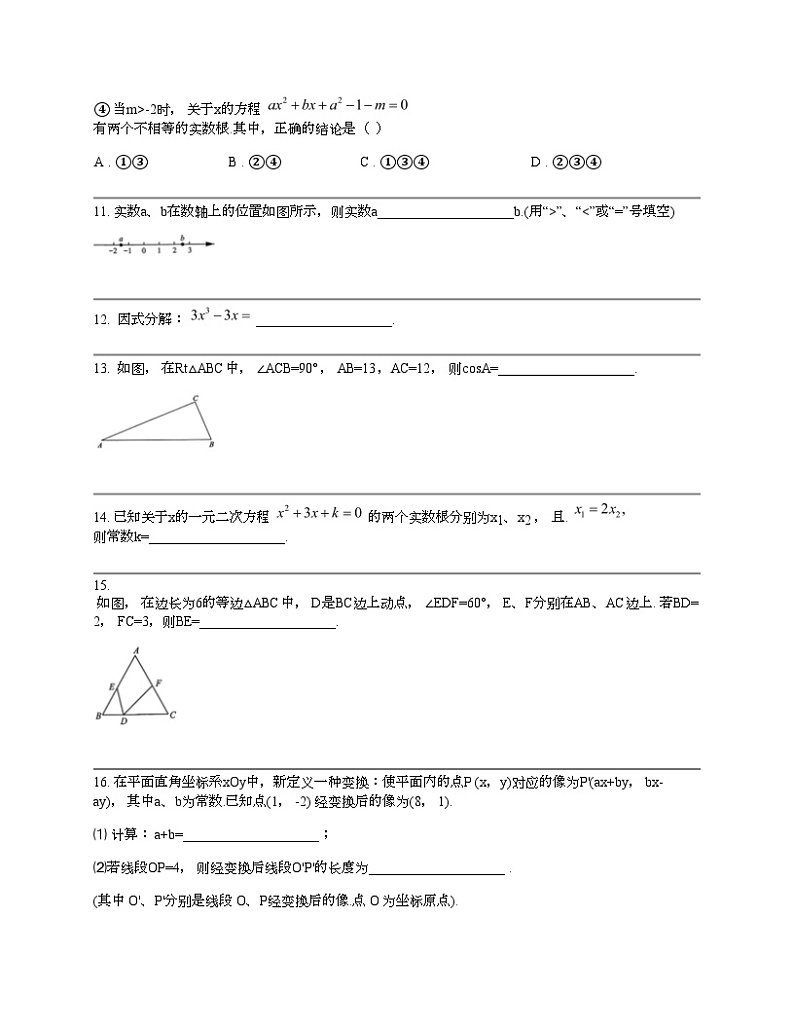 ④当m>-2时, 关于x的方程 ax²+bx+a²-1-m=0
有两个不相等的实数根.其中，正确的结论是（ ）
A . ①③ B . ②④ C . ①③④ D . ②③④
11. 实数a、b在数轴上的位置如图所示，则实数a____________________b.(用“>”、“<”或“=”号填空)
a b
-2 -1 0 1 2 3
12. 因式分解： 3x³-3x= ____________________.
13. 如图, 在Rt△ABC 中, ∠ACB=90°, AB=13，AC=12, 则cosA=____________________.
C
A B
14. 已知关于x的一元二次方程 x²+3x+k=0 的两个实数根分别为x₁、x₂ , 且. x₁=2x₂,
则常数k=____________________.
15.
如图, 在边长为6的等边△ABC 中, D是BC边上动点, ∠EDF=60°, E、F分别在AB、AC 边上. 若BD=
2, FC=3，则BE=____________________.
A
E F
B D C
16. 在平面直角坐标系xOy中，新定义一种变换：使平面内的点P (x，y)对应的像为P'(ax+by, bx-
ay), 其中a、b为常数.已知点(1, -2) 经变换后的像为(8, 1).
⑴ 计算：a+b=____________________；
⑵若线段OP=4, 则经变换后线段O'P'的长度为____________________ .
(其中 O'、P'分别是线段 O、P经变换后的像.点 O 为坐标原点).